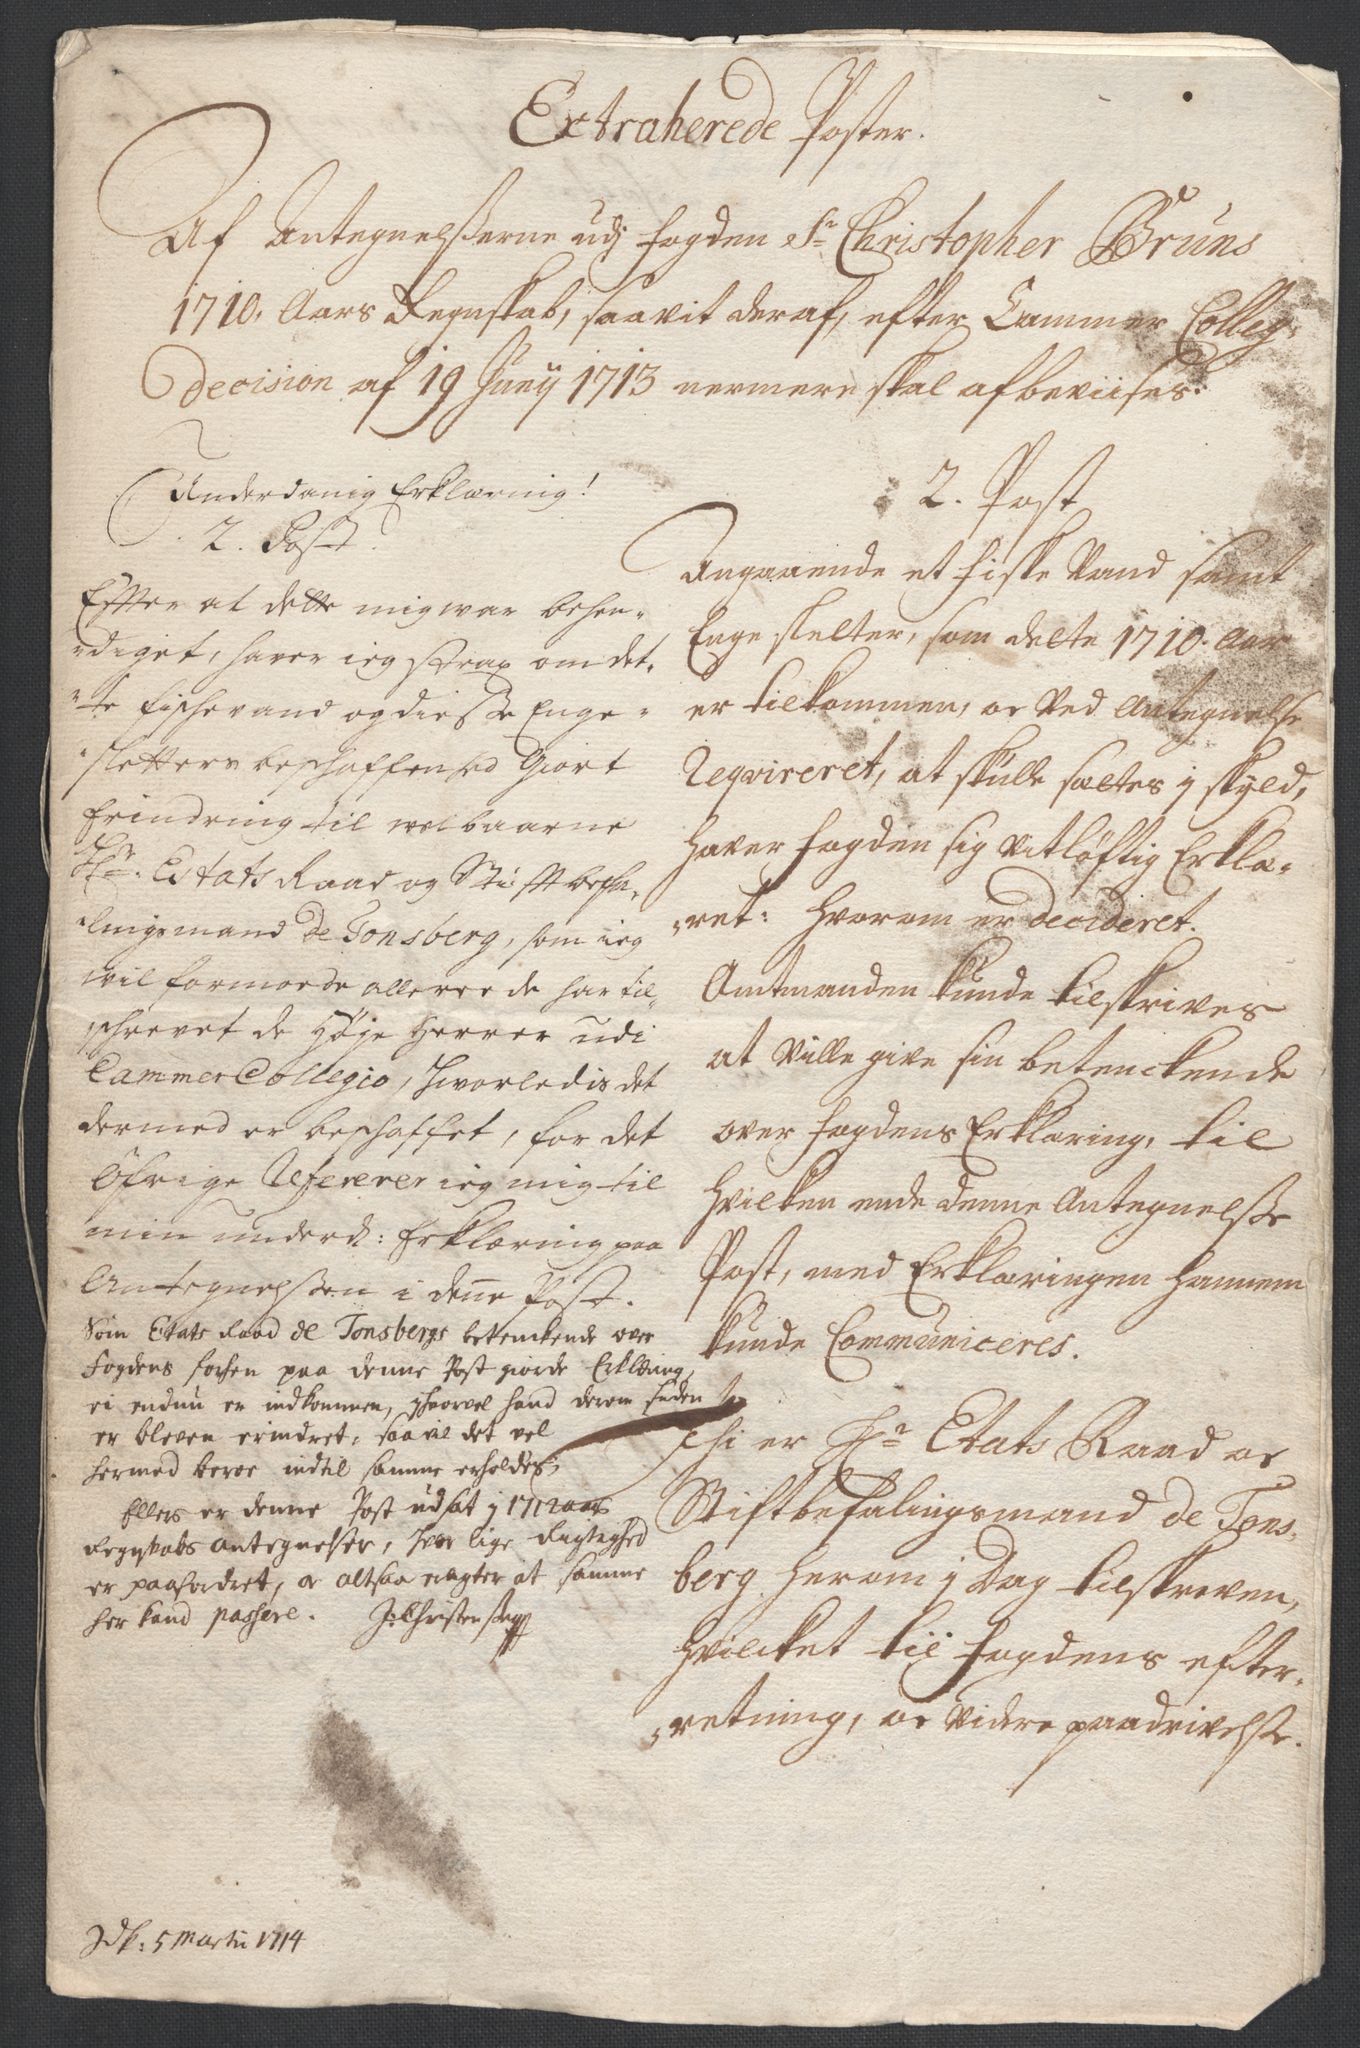 Extraherede Poster.
Af Antegnelsserne udj fogden Sr Christopher Bruns
1710. Aars Regnskab, saavit deraf, efter Cammer Colleg:
decision af 19 Junij 1713 nermere skal afbeviises:
Underdanig Erklæring!
2. Post
Efter at dette mig war behen-
-diget, haver ieg strax om det-
-te fischevand og diesse Enge-
-sletters beschaffenhed Giort
Erindring til welbaarne
Hr. Etats Raad og Stiftbefa-
-lingsmand de Tonsberg, som ieg
wil formode allereede har til-
schrevet de Høje Herrer udi
Cammer Collegio, hvorledis det
dermed er beschaffet, for det
Øfrige Refererer ieg mig til
min underd: Erklæring paa
Antegnelssen i denne Post.
Som Etats Raad de Tonsbergs betenckende over
Fogdens forhen paa denne Post giorde Erklæring,
ei endnu er indkommen, ihvorvel hand derom siden
er bleven erindret, saa vil det vel
hermed beroe indtil samme erholdes,
Ellers er denne Post udsat j 1712 aars
Regnskabs antegnelser, hvor lige Rigtighed
er paafordret, oc altsaa eragter at samme
her kand passere. J: Christenssen
Idk: 5 Martii 1714
2. Post
Angaaende et fiske Vand samt
Enge sletter, som dette 1710. Aar
er tilkommen, oc Ved Antegnelse
Reqvireret, at skulle sættes j skyld,
haver fogden sig Vitløftig Erklæ-
-ret: hvorom er decideret.
Amtmanden kunde tilskrives
at Ville give sin betenckende
over fogdens Erklæring, til
hvilken ende denne Antegnelsse
Post, med Erklæringen hannem
kunde Communiceres.
Thi er Hr Etats Raad oc
Stiftbefalingsmand de Tons-
berg herom j Dag tilskreven,
hvilcket til fogdens efter-
-retning, oc Videre paadrivelse.